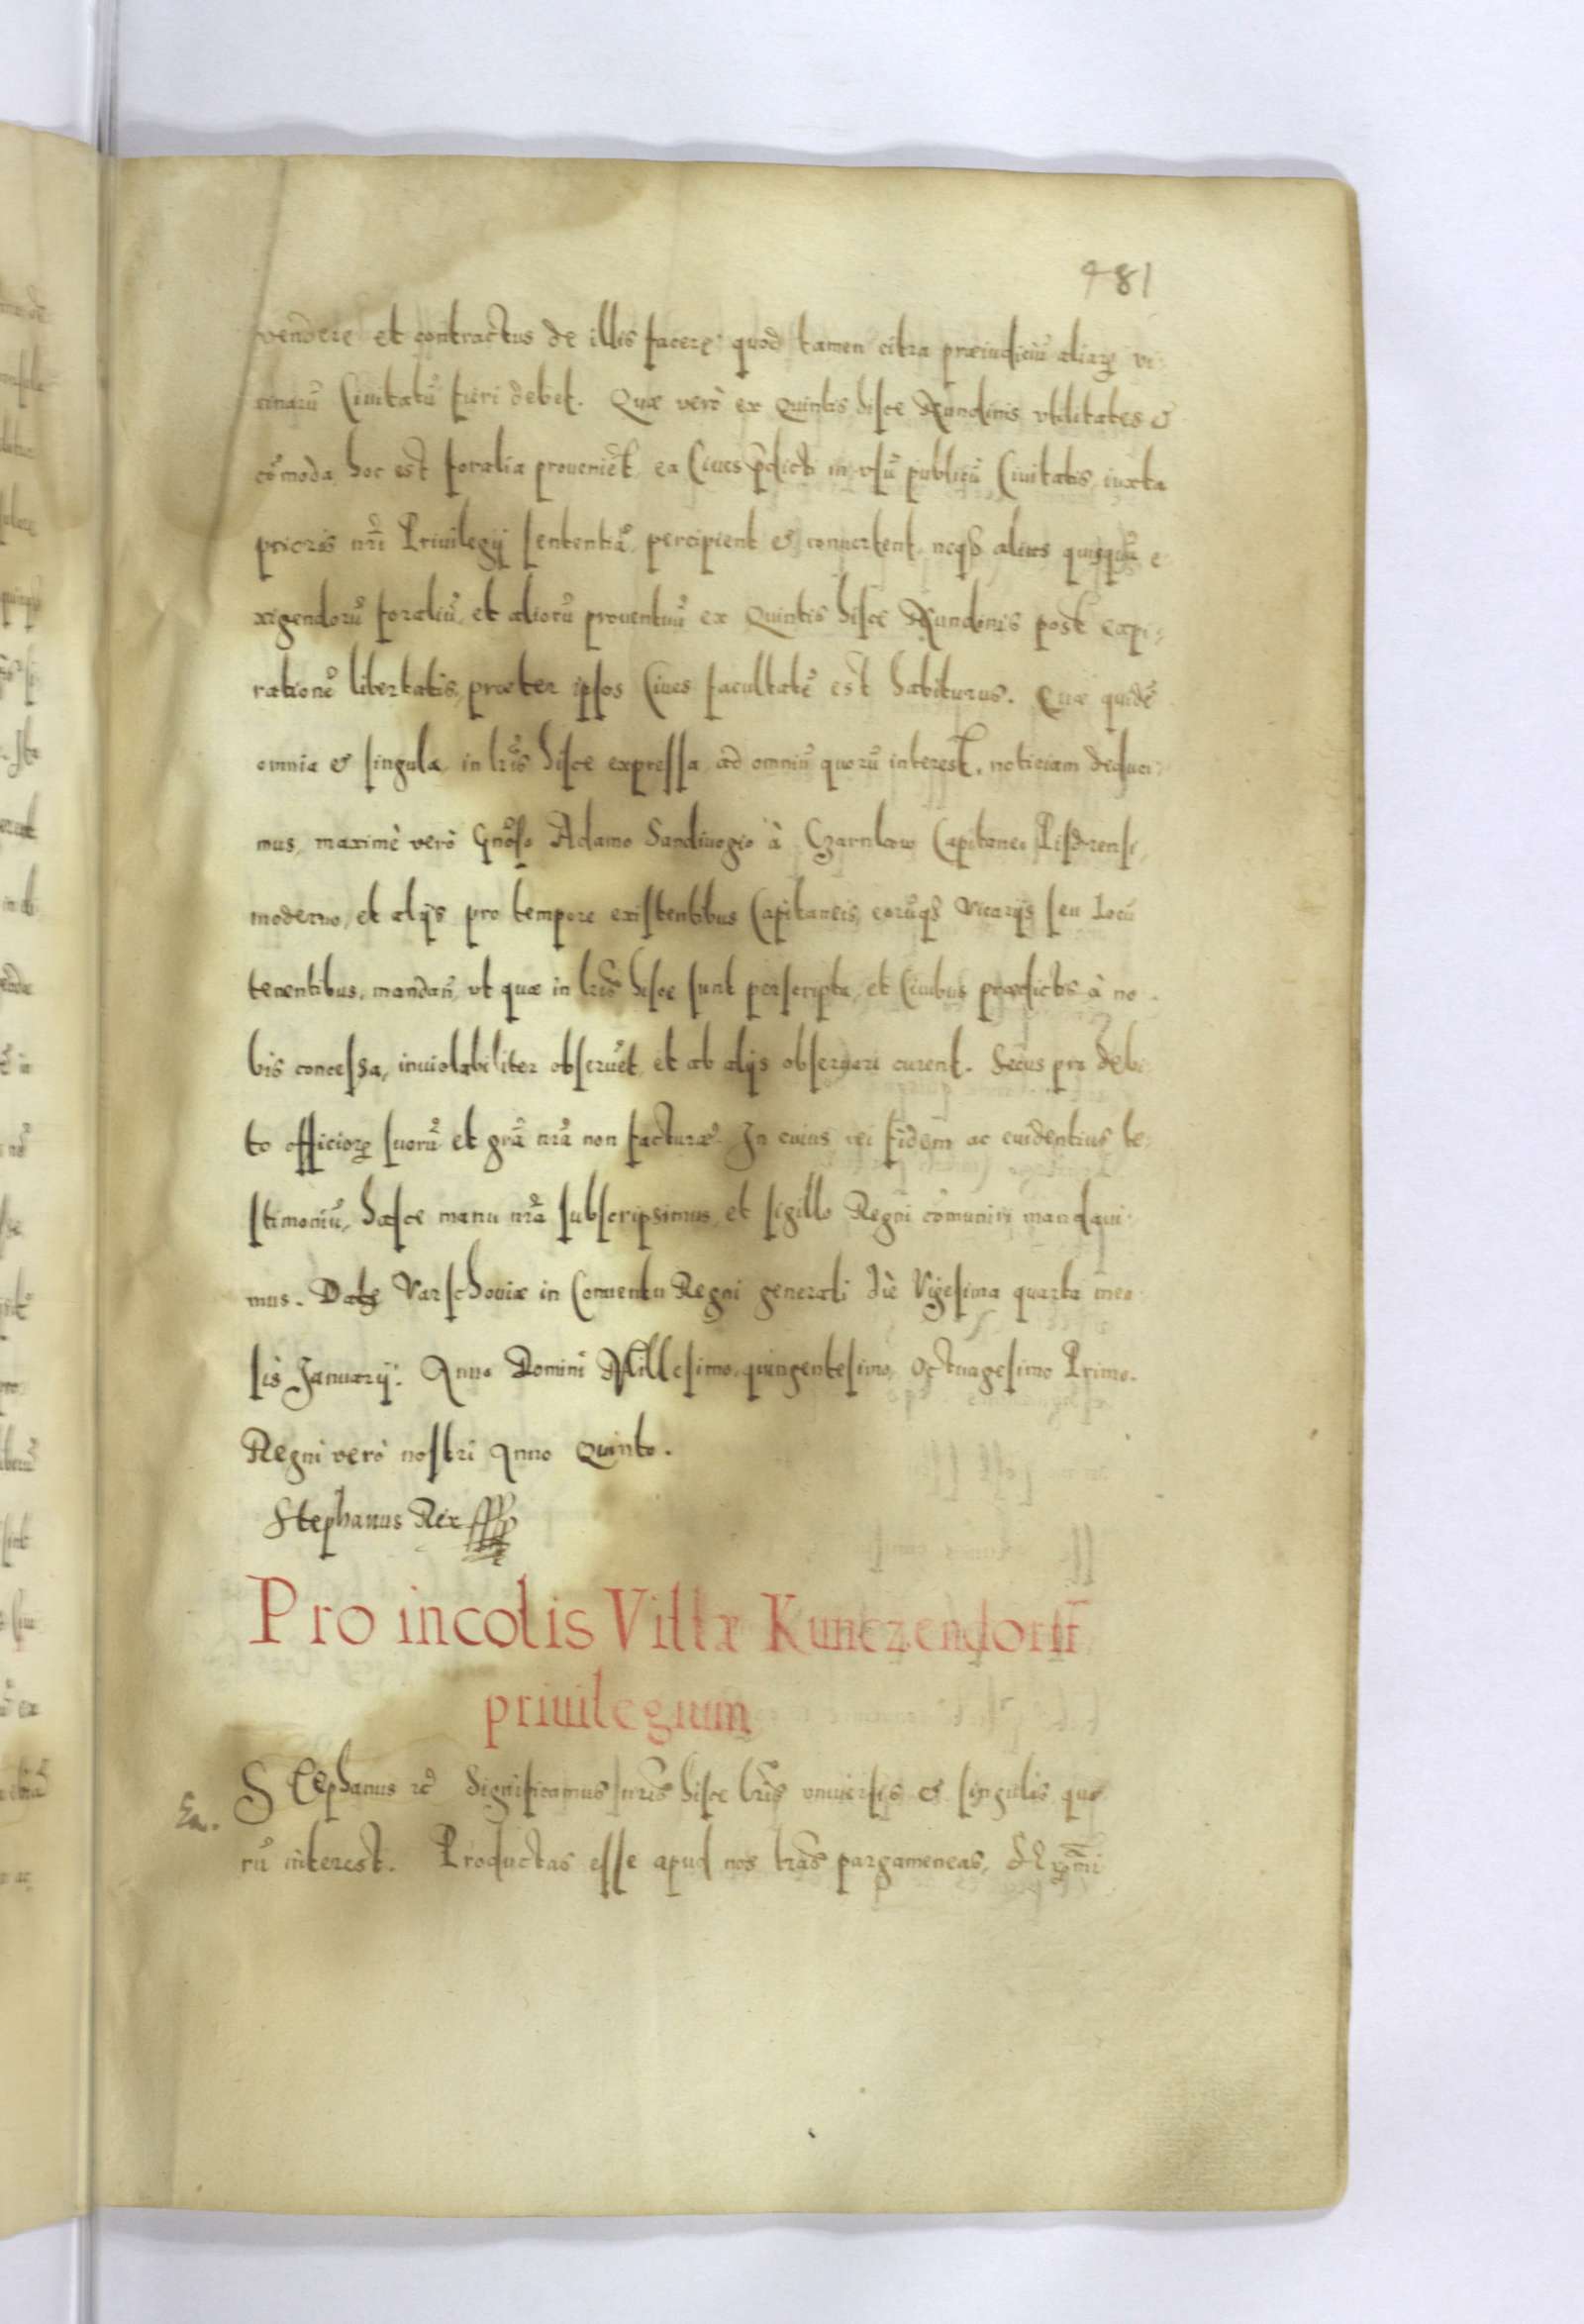 481
vendere et contractus de illis facere: quod tamen citra præiudiciũ aliarꝫ vi:
cinarũ Ciuitatũ fieri debet. Quæ verò ex Quintis hisce Nundinis vtilitates &
cõmoda, hoc est foralia prouenient, ea Ciues p̃dicti in vsũ publicũ Ciuitatis, iuxta
prioris nr̃i Priuilegij sententiã, percipient & conuertent, neqꝫ alius quisquã e:
xigendorũ foraliũ, et aliorũ prouentuũ ex Quintis hisce Nundinis post expi:
rationẽ libertatis, præter ipsos Ciues facultatẽ est habiturus. Quæ quidẽ
omnia & singula in lr̃is hisce expressa, ad omniũ quorũ interest, noticiam deduci:
mus, maximè verò Gnõso Adamo Sandiuogio à Czarnkow Capitaneo Pisdrensi,
moderno, et alijs pro tempore existentibus Capitaneis, eorũqꝫ Vicarijs seu Locũ
tenentibus, mandañ, vt quæ in lr̃is hisce sunt perscripta, et Ciuibus prædictis à no:
bis concessa, inuiolabiliter obseruẽt, et ab alijs obseruari curent. Secus pro debi:
to officiorꝫ suorũ et grã nr̃a non facturæ. In cuius rei fidem̃ ac euidentius te:
stimoniũ, hasce manu nr̃a subscripsimus, et sigillo Regni cõmuniri mandaui:
mus. Datꝫ Varschouiæ in Conuentu Regni generali diè Vigesima quarta men:
sis Januarij: Anno Domini Millesimo, quingentesimo, Octuagesimo Primo.
Regni verò nostri Anno Quinto.
Stephanus Rex
Pro incolis Villæ Kunczendorff
priuilegium
Stephanus ꝛc̃ Significamus nr̃is hisce lr̃is vniuersis & singulis quo
rũ interest. Productas esse apud nos lr̃as pargameneas,